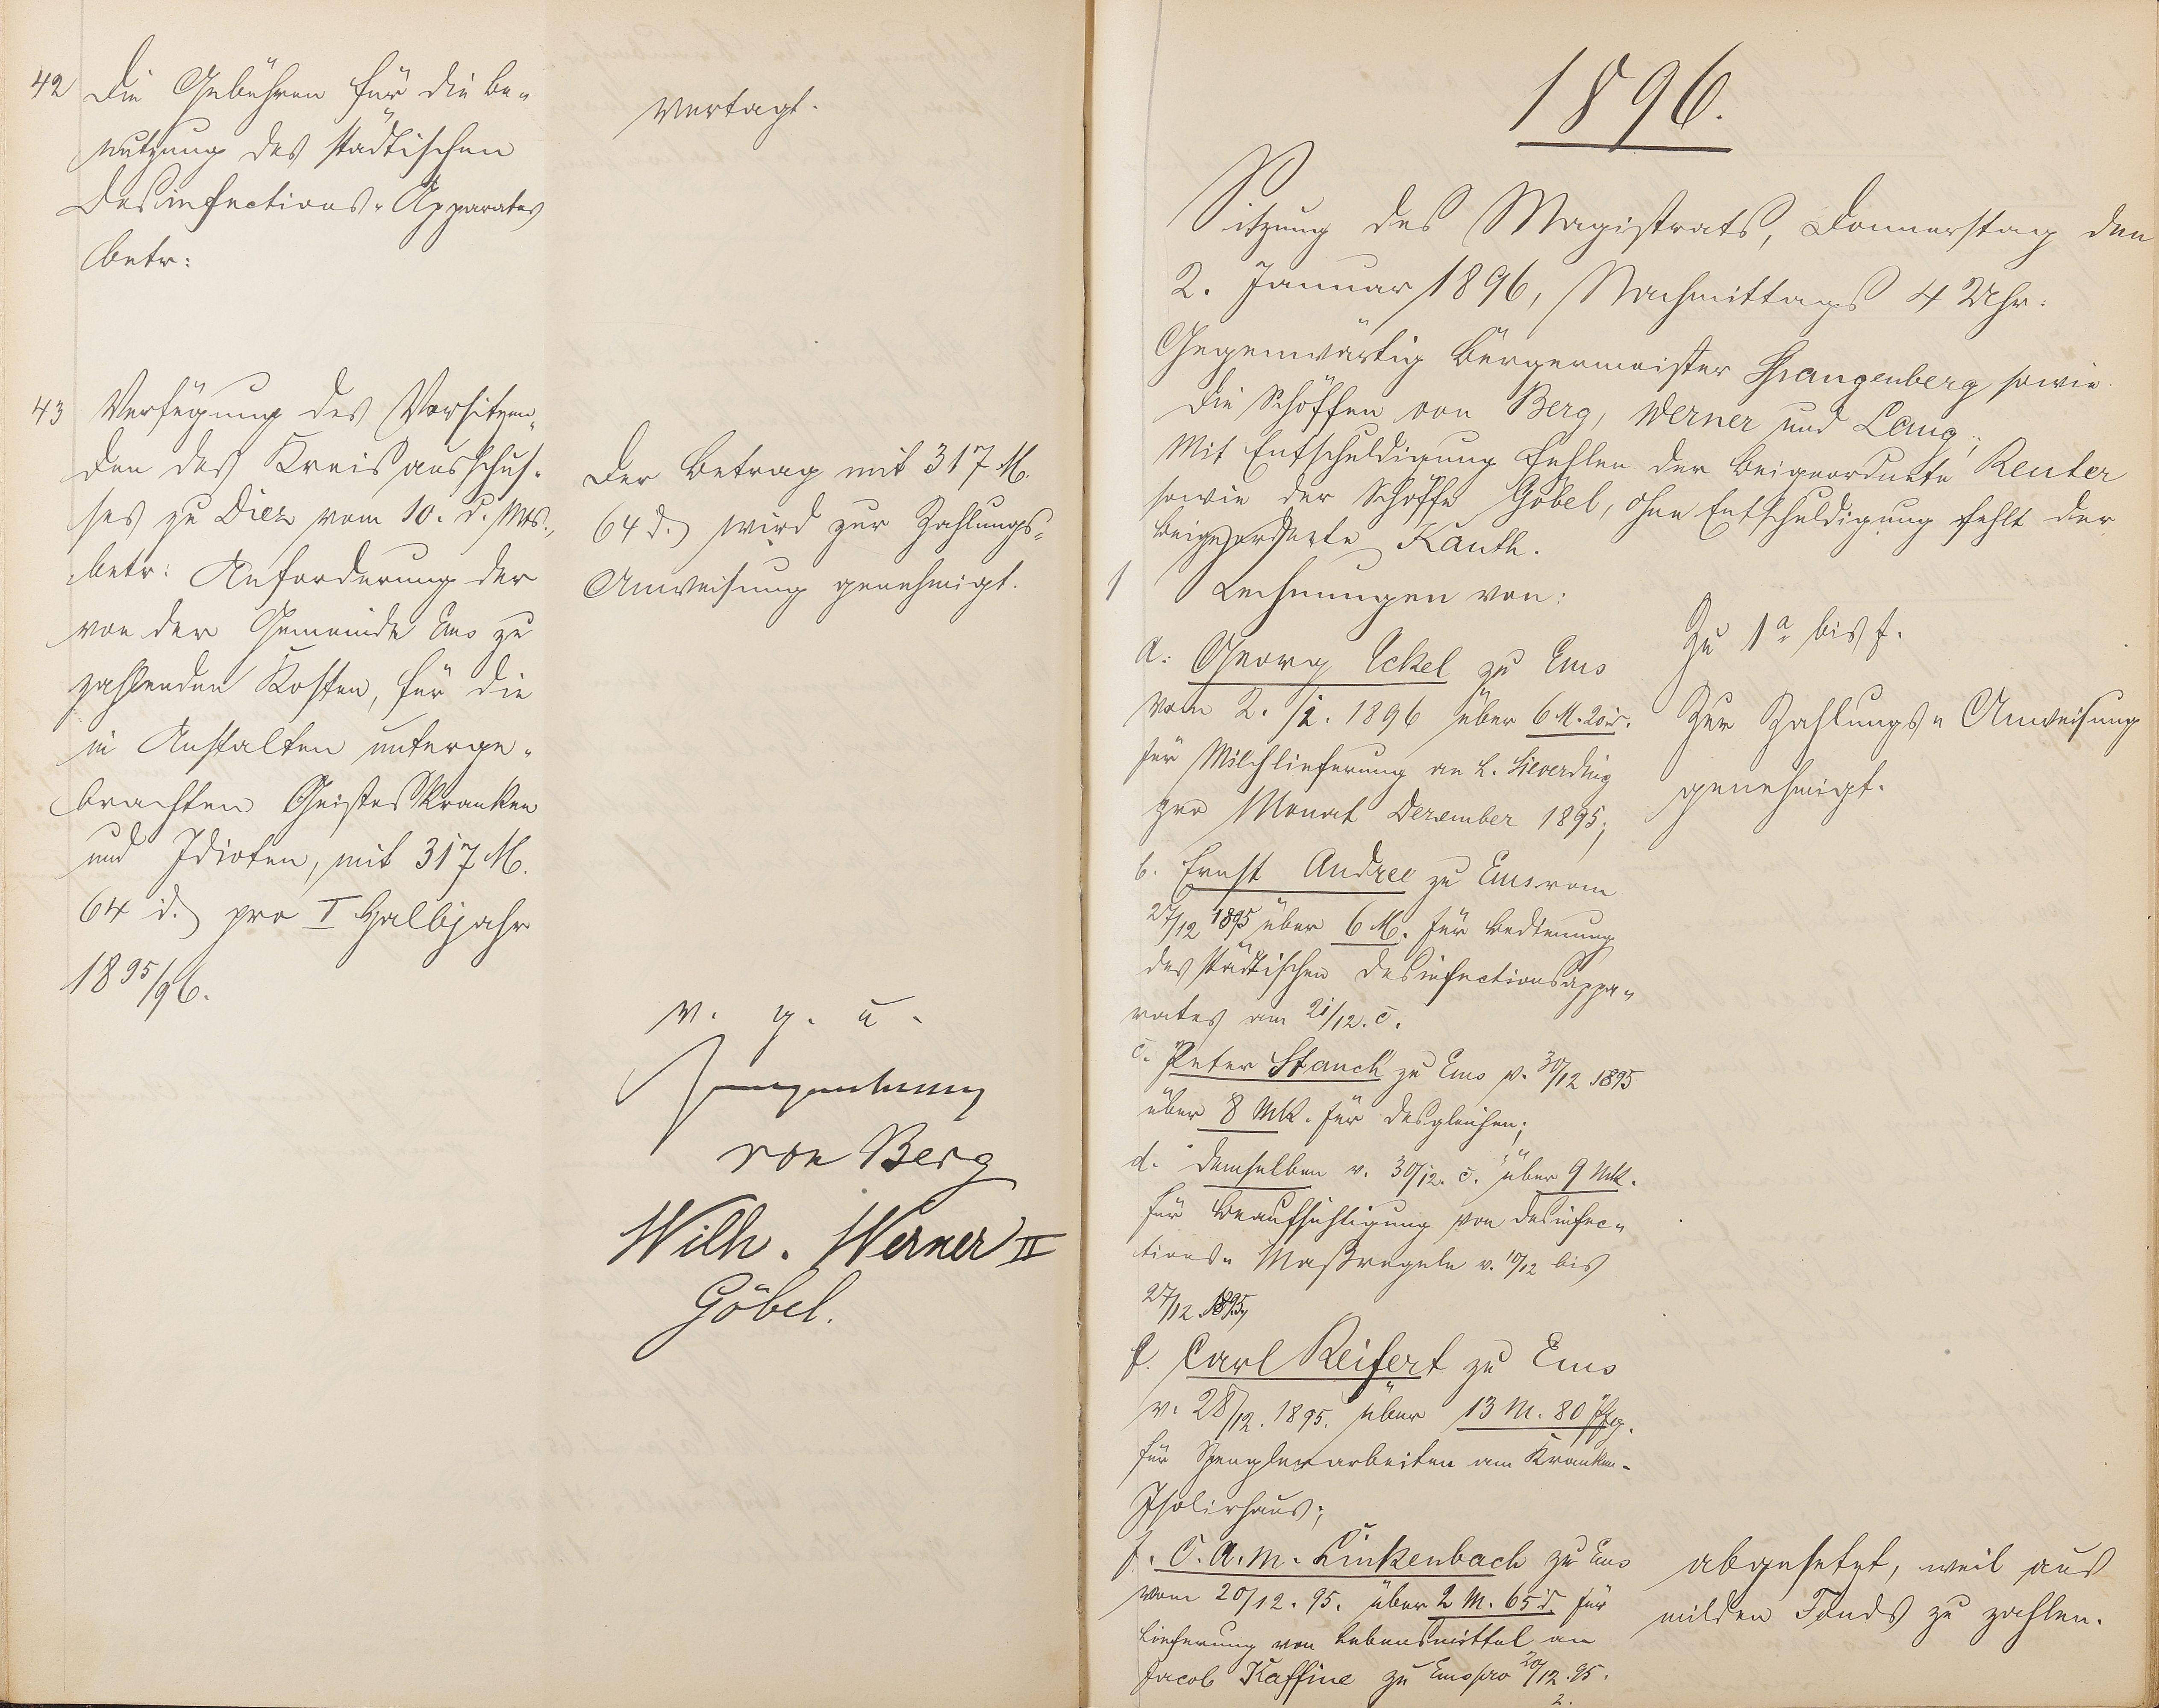 42 Die Gebühren für die Be-
nutzung des städtischen
Desinfections-Apparates
betr:
vertagt.
43 Verfügung des Vorsitzen-
den des Kreisausschus-
ses zu Diez vom 10. d. Mts.,
betr: Anforderung der
von der Gemeinde Ems zu
zahlenden Kosten, für die
in Anstalten unterge-
brachten Geisteskranken
und Idioten, mit 317 M.
64 d. pro I Halbjahr
1895/96.
Der Betrag mit 317 M.
64 d. wird zur Zahlungs-
Anweisung genehmigt.
v. g. u.
Spangenberg
von Berg
Wilh. Werner II
Göbel.
1896.
Sitzung des Magistrats, Donnerstag den
2. Januar 1896, Nachmittags 4 Uhr.
Gegenwärtig Bürgermeister Spangenberg sowie
die Schöffen von Berg, Werner und Lang;
Mit Entschuldigung fehlen der Beigeordnete Reuter
sowie der Schöffe Göbel, ohne Entschuldigung fehlt der
Beigeordnete Kauth.
1 Rechnungen von:
a. Georg Eckel zu Ems
vom 2./1. 1896 über 6 M. 20 d.
für Milchlieferung an L. Sieverding
pro Monat Dezember 1895;
b. Ernst Andree zu Ems vom
27/12 1895 über 6 M. für Bedienung
des städtischen Desinfectionsappa-
rates am 21/12. c.
c. Peter Stauch zu Ems v. 30/12 1895
über 8 Mk. für desgleichen;
d. Demselben v. 30/12. c. über 9 Mk.
für Beaufsichtigung von Desinfec-
tions-Maßregeln v. 10/12 bis
27/12 1895,
f. Carl Reifert zu Ems
v. 28/12. 1895. über 13 M. 80 Pfg.
für Spenglerarbeiten am Kranken-
Isolirhaus;
f. C. A. M. Linkenbach zu Ems
vom 20/12. 95. über 2 M. 65 d. für
Lieferung von Lebensmittel an
Jacob Kaffine zu Ems pro 20/12. 95.
2.
Zu 1 a bis f.
Zur Zahlungs-Anweisung
genehmigt.
abgesetzt, weil aus
milden Fonds zu zahlen.